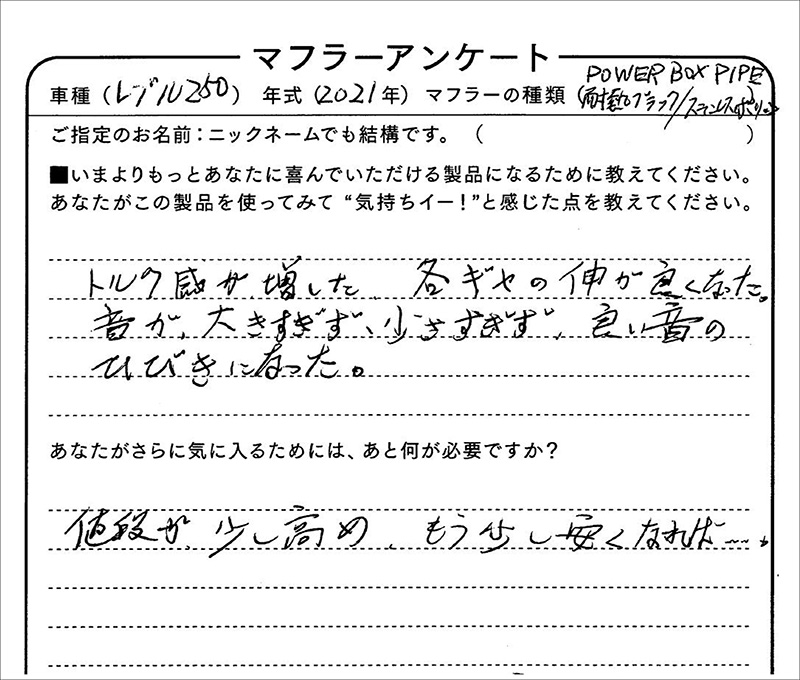 マフラーアンケート
POWER BOX PIPE
車種（レブル250）年式（2021年）マフラーの種類（耐熱ブラック/ステンレスポリッシュ）
ご指定のお名前：ニックネームでも結構です。（ ）
■いまよりもっとあなたに喜んでいただける製品になるために教えてください。
あなたがこの製品を使ってみて“気持ちイー！”と感じた点を教えてください。
トルク感が、増した、各ギヤの伸が良くなった。
音が、大きすぎず、少さすぎず、良い音の
ひびきになった。
あなたがさらに気に入るためには、あと何が必要ですか？
値段が、少し高め、もう少し安くなれば…。